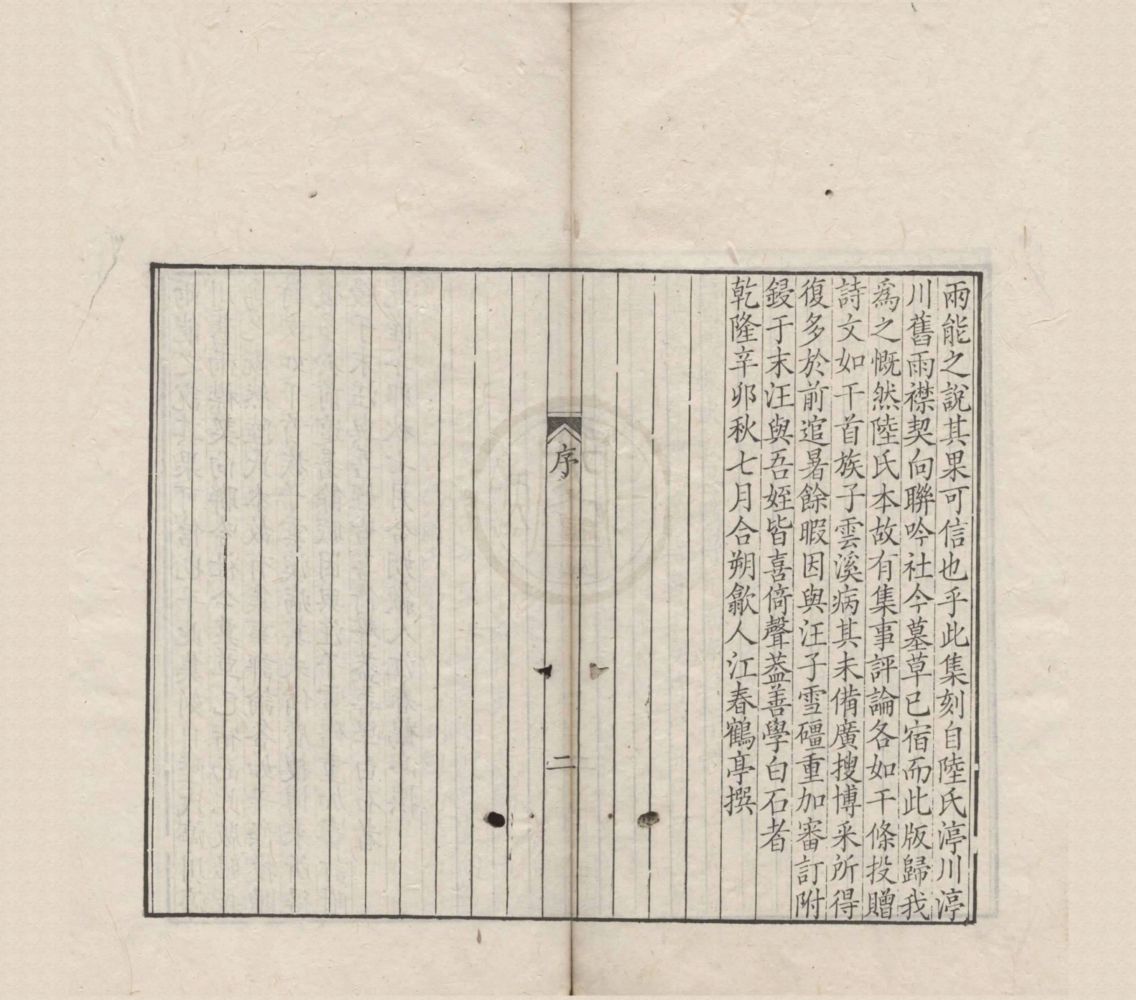 兩能之說其果可信也乎此集刻自陸氏渟川渟
川舊雨襟契向聯吟社今墓草已宿而此版歸我
爲之慨然陸氏本故有集事評論各如干條投贈
詩文如干首族子雲溪病其未備廣搜博采所得
復多於前逭暑餘暇因與汪子雪礓重加審訂附
鋟于末汪與吾姪皆喜倚聲葢善學白石者
乾隆辛卯秋七月合朔歙人江春鶴亭撰
序
二